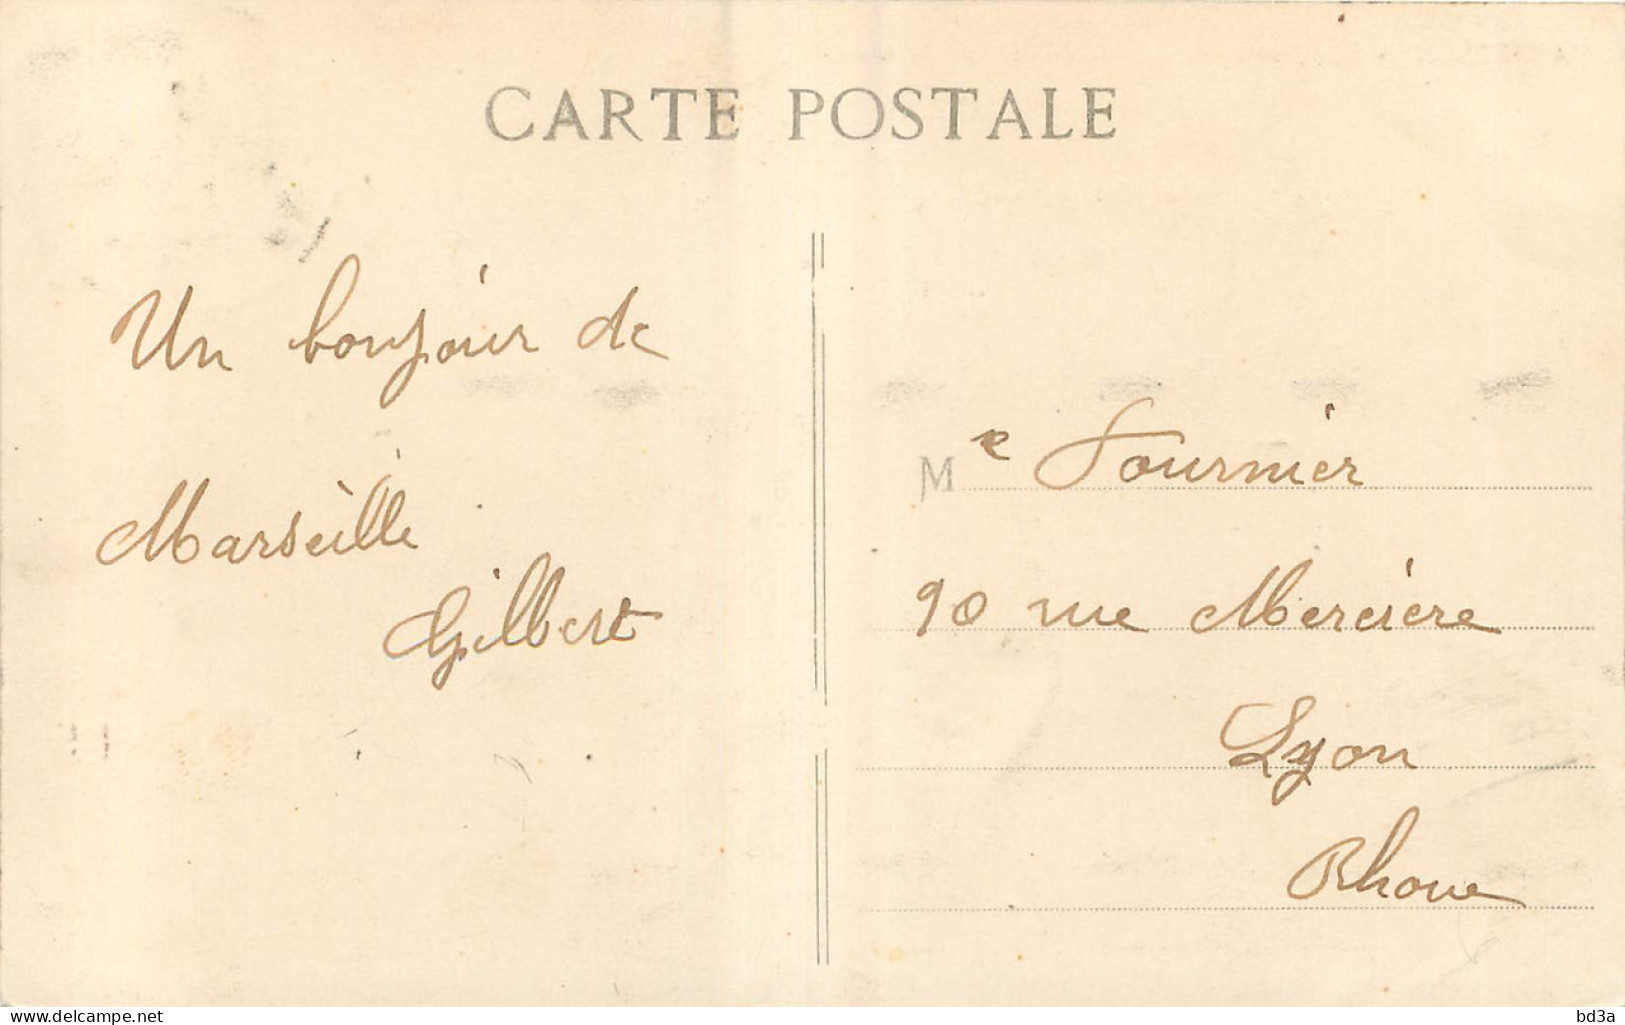 CARTE POSTALE
Un bonjour de
Marseille
Gilbert
Me Fournier
90 rue Mercière
Lyon
Rhone
www.delcampe.net
bd3a